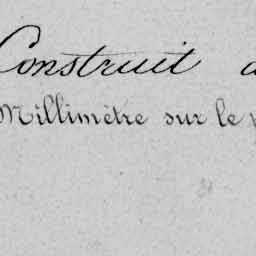 Construit
Millimètre sur le